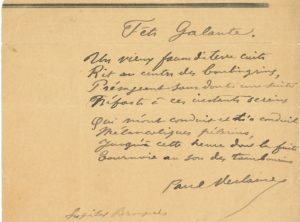 Fêtes Galantes.
Un vieux faune de terre cuite
Rit au centre des boulingrins,
Présageant sans doute une suite
Néfaste à ces instants sereins
Qui m'ont conduit et t'ont conduite
Mélancoliques pèlerins,
Jusqu'à cette heure dont la fuite
Tournoie au son des tambourins
Paul Verlaine